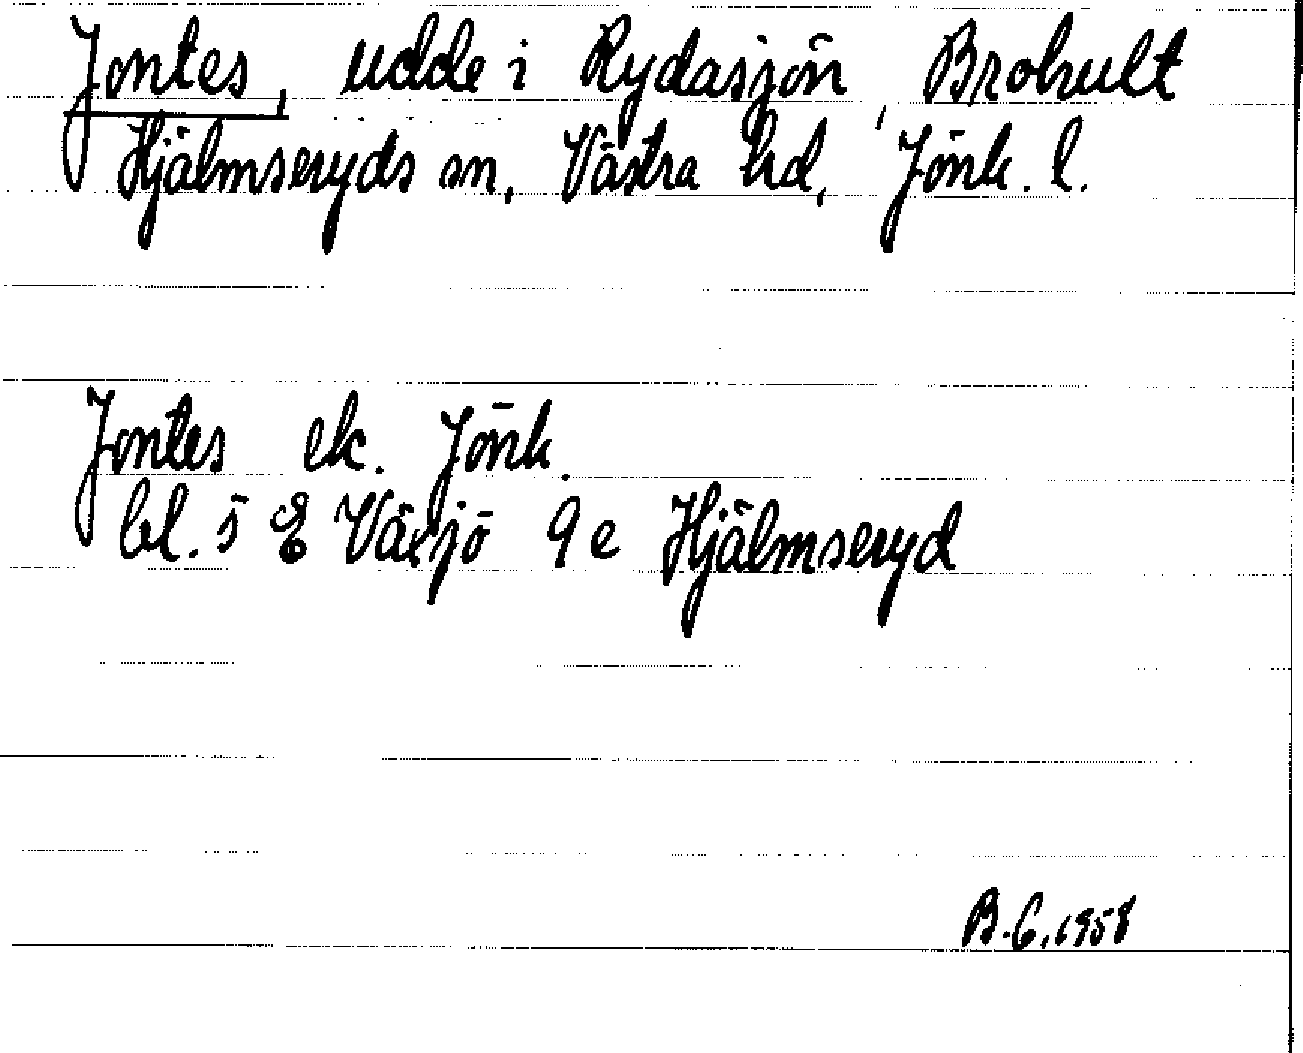 Jontes, udde i Rydasjön, Brohult
Hjälmseryds sn, Västra hd, Jönk. l.
Jontes ek. Jönk.
bl. 5 E Växjö 9e Hjälmseryd
B.G. 1958